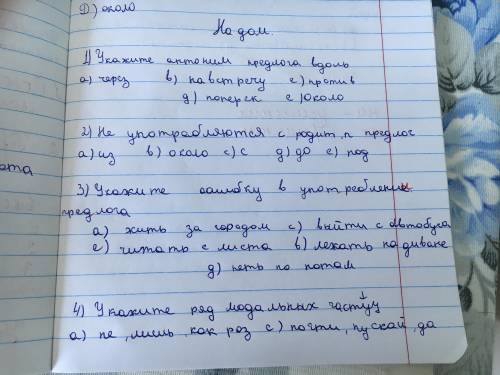 D) около
На дом.
1) Укажите антоним предлога вдоль
а) через в) навстречу с) против
д) поперек е) около
2) Не употребляются с родит. п предлог
а) из в) около с) с д) до е) под
ота
3) Укажите ошибку в употреблении
предлога
а) жить за городом с) выйти с автобуса
е) читать с листа в) лежать на диване
д) петь по нотам
4) Укажите ряд модальных частиц
а) не, лишь, как раз с) почти, пускай, да